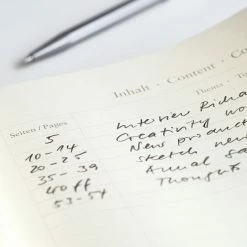 Inhalt · Content · Co
Thema · T
Seiten / Pages
5 Interview Richa
10-14 Creativity wo
20-25 News product
35-39 sketch new
40 ff Annual sa
53-54 Thoughts